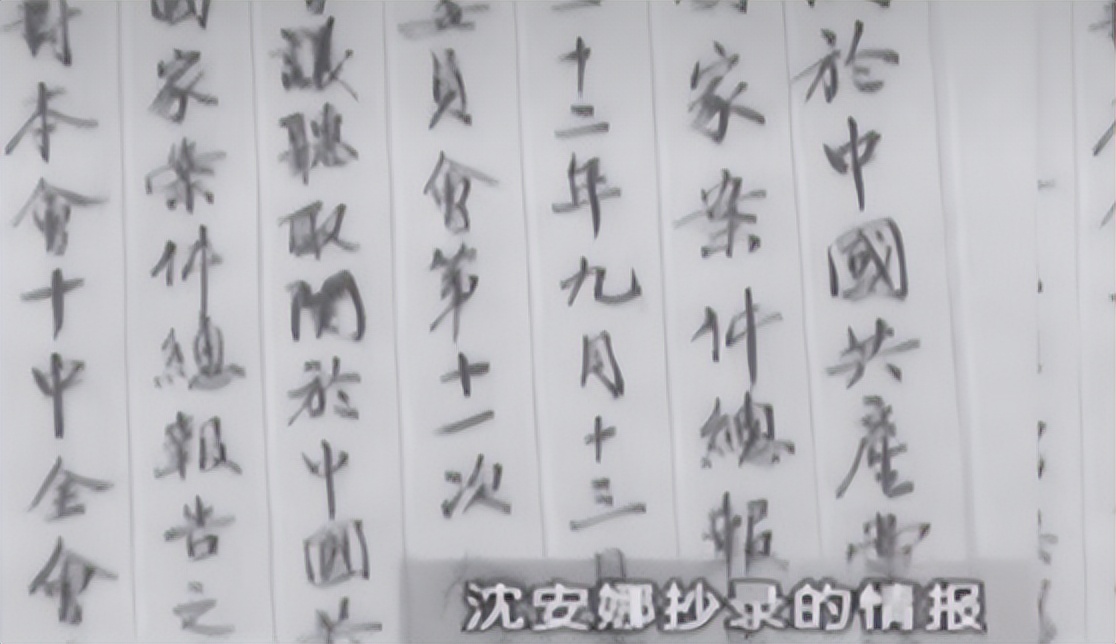 於中國共產黨
家案件總報
十二年九月十三日
員會第十一次
議聽取關於中國共
國家案件總報告之
對本會十中全會
沈安娜抄录的情报